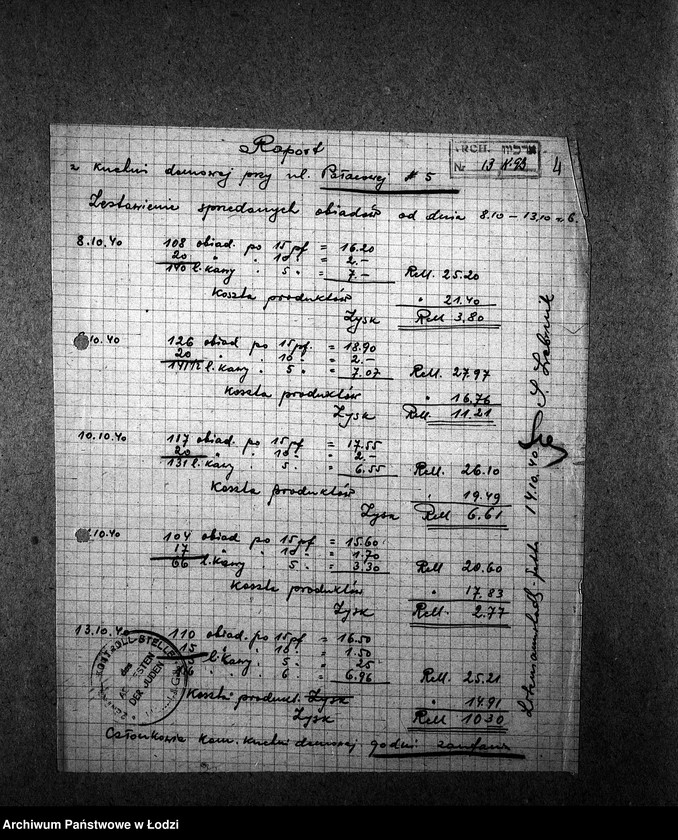 Raport
ARCH.
Nr 13
4
z kuchni domowej przy ul. Pałacowej # 5
Zestawienie sprzedanych obiadów od dnia 8.10 – 13.10 r. b.
8.10.40 108 obiad. po 15 pf = 16.20
20 " . 10 " = 2.–
140 l. kawy . 5 " = 7.– RM. 25.20
Koszta produktów " 21.40
Zysk RM 3.80
.10.40 126 obiad po 15 pf. = 18.90
20 " . 10 " = 2.–
l. kawy . 5 " = 7.07 RM. 27.97
Koszta produktów " 16.76
Zysk RM. 11.21
10.10.40 117 obiad. po 15 pf = 17.55
20 " . 10 " = 2.–
131 l. kawy . 5 " = 6.55 RM. 26.10
Koszta produktów . 19.49
Zysk RM 6.61
.10.40 104 obiad po 15 pf = 15.60
17 " . 10 " = 1.70
66 l. kawy . 5 " = 3.30 RM 20.60
Koszta produktów " 17.83
Zysk RM. 2.77
13.10.40 110 obiad. po 15 pf = 16.50
15 " . 10 " = 1.50
l. kawy . 5 " = 25
" . 6 " = 6.96 RM. 25.21
Koszta produkt. Zysk " 14.91
Zysk RM 10 30
Członkowie kom. kuchni domowej godni zaufania
KONTROLL-STELLE
des
ÄLTESTEN
DER JUDEN
14.10.40
Archiwum Państwowe w Łodzi